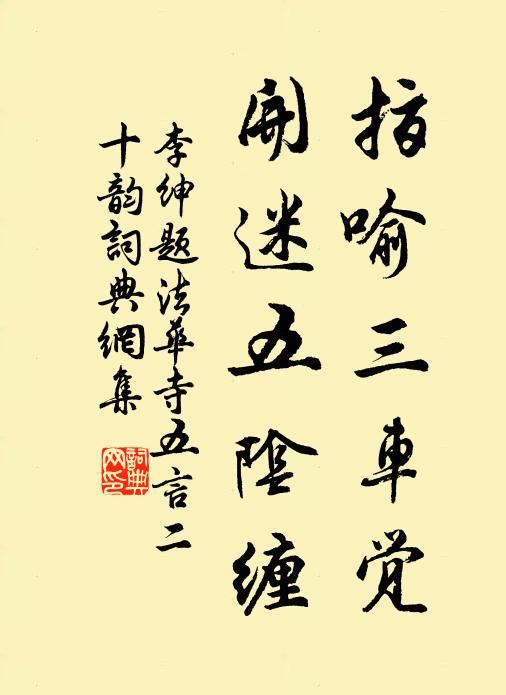 指喻三車觉
開迷五陰缠
李绅题法華寺五言二
十韵詞典網集
詞典网印